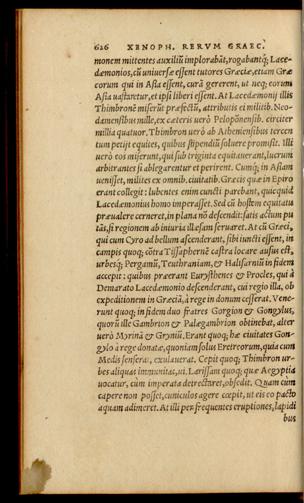 626 XENOPH. RERVM GRAEC.
monem mittentes auxiliũ implorabãt, rogabantq́; Lace-
dæmonios, cũ uniuersæ essent tutores Græciæ, etiam Græ
corum qui in Asia essent, curã gererent, ut neq; eorum
Asia uastaretur, et ipsi liberi essent. At Lacedæmonij illis
Thimbronẽ miserũt præfectũ, attributis ei militib. Neo-
damensibus mille, ex cæteris uerò Peloponẽsib. circiter
millia quatuor. Thimbron uerò ab Atheniensibus trecen
tum petijt equites, quibus stipendiũ soluere promisit. Illi
uerò eos miserunt, qui sub triginta equitauerant, lucrum
arbitrantes si ablegarentur et perirent. Cumq́; in Asiam
uenisset, milites ex omnib. ciuitatib. Græcis quæ in Epiro
erant collegit: lubentes enim cuncti parebant, quicquid
Lacedæmonius homo imperasset. Sed cũ hostem equitatu
præualere cerneret, in plana nõ descendit: satis actum pu
tãs, si regionem ab iniuria illæsam seruaret. At cũ Græci,
qui cum Cyro ad bellum ascenderant, sibi iuncti essent, in
campis quoq; cõtra Tissaphernẽ castra locare ausus est,
urbesq́; Pergamũ, Teuthraniam, & Halisarniũ in fidem
accepit: quibus præerant Eurysthenes & Procles, qui à
Demarato Lacedæmonio descenderant, cui regio illa, ob
expeditionem in Græciã, à rege in donum cesserat. Vene-
runt quoq; in fidem duo fratres Gorgion & Gongylus,
quorũ ille Gambrion & Palægambrion obtinebat, alter
uerò Myrinã & Gryniũ. Erant quoq; hæ ciuitates Gon-
gylo à rege donatæ, quoniam solus Eretreorum, quia cum
Medis senserat, exulauerat. Cepit quoq; Thimbron ur-
bes aliquas immunitas, ui. Larissam quoq; quæ Aegyptia
uocatur, cùm imperata detrectaret, obsedit. Quam cum
capere non posset, cuniculos agere cœpit, ut eis eo pacto
aquam adimeret. At illi per frequentes eruptiones, lapidi
bus